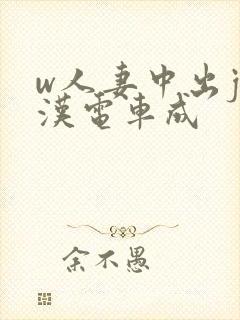 w人妻中出j
漢電車成
余不愚